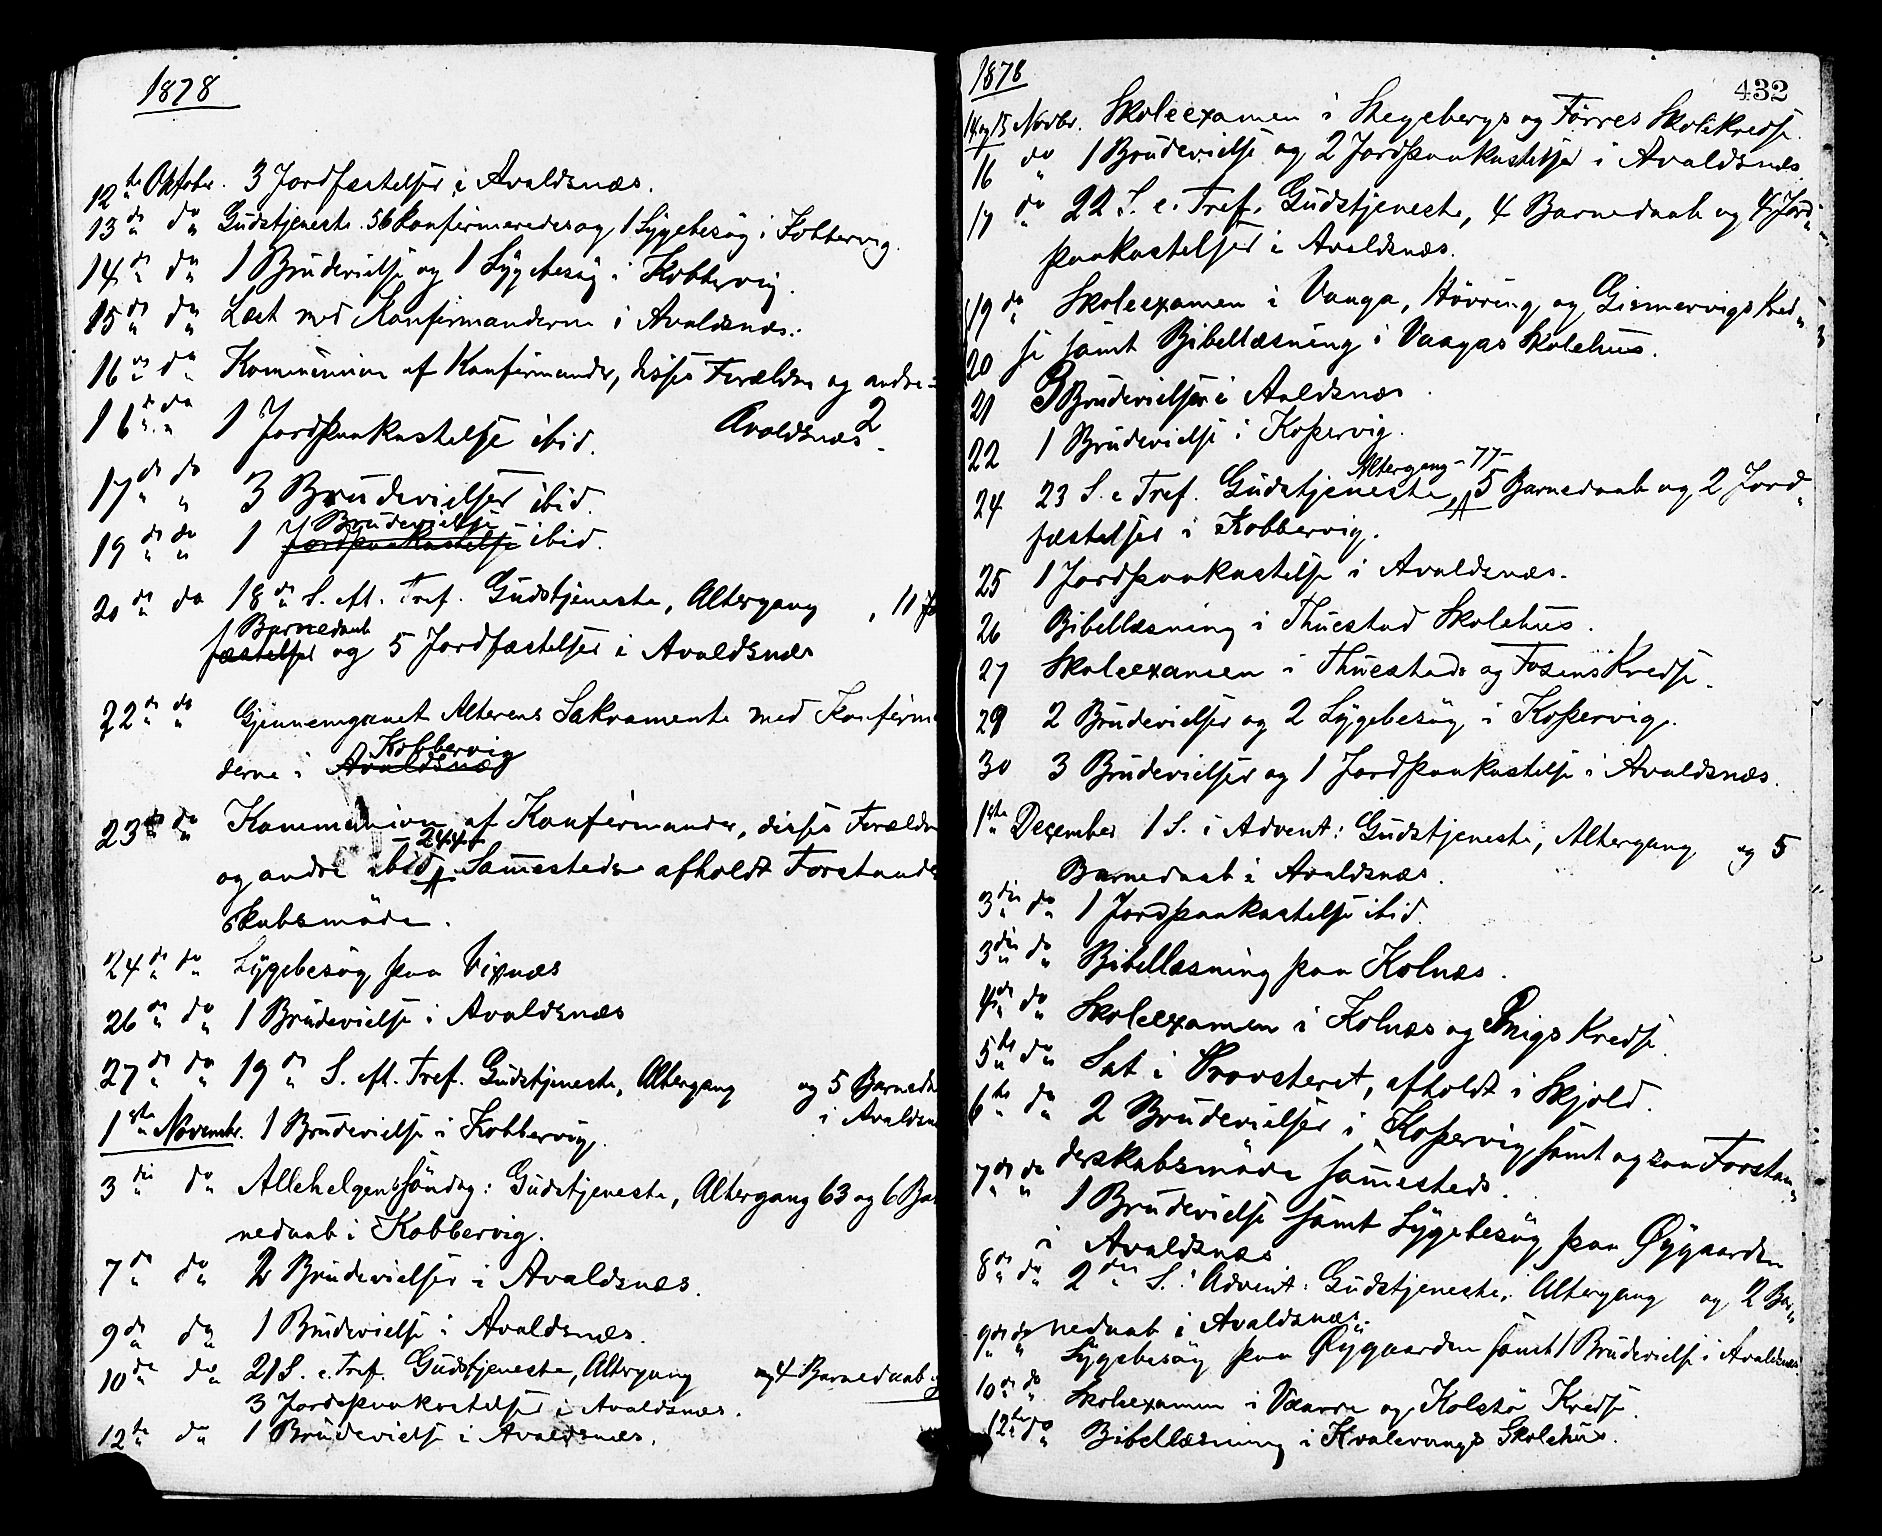 1878
12te Oktober. 3 Jordfæstelser i Avaldsnæs.
13de do Gudstjeneste. 56 Konfirmeredes og 1 Sygebesøg i Kobbervig.
14de do 1 Brudevielse og 1 Sygebesøg i Kobbervig.
15de do Læst med Konfirmanderne i Avaldsnæs.
16de do Kommunion af Konfirmander, disses Forældre og andre i
Avaldsnæs
16de do 1 Jordpaakastelse ibid.
17de do 3 Brudevielser ibid.
Brudevielse
19de do 1 Jordpaakastelse ibid.
20de do 18de S. eft. Tref. Gudstjeneste, Altergang , 11 Jo
1 Barnedaab
fæstelser og 5 Jordfæstelser i Avaldsnæs
22de do Gjennemgaaet Alterens Sakramente med Konfirm
Kobbervig
derne i Avaldsnæs
23de do Kommunion af Konfirmander, disses Forældre
244
og andre ibid, Sammesteds afholdt Forstander
skabsmøde.
24de do Sygebesøg paa Visnæs
26de do 1 Brudevielse i Avaldsnæs
27de do 19de S. eft. Tref. Gudstjeneste, Altergang og 5 Barneda
i Avaldsnæ
1ste Novembr. 1 Brudevielse i Kobbervig.
3die do Allehelgenssøndag: Gudstjeneste, Altergang 63 og 6 Bar
nedaab i Kobbervig.
7de do 2 Brudevielser i Avaldsnæs.
9de do 1 Brudevielse i Avaldsnæs.
10de do 21 S. e. Tref. Gudstjeneste, Altergang og 4 Barnedaab og
3 Jordpaakastelser i Avaldsnæs.
12te do 1 Brudevielse i Avaldsnæs.
1878
432
14 og 15 Novbr. Skoleexamen i Stegebergs og Førres Skolekredse.
16 do 1 Brudevielse og 2 Jordpaakastelser i Avaldsnæs
17 do 22 S. e. Tref. Gudstjeneste, 4 Barnedaab og 4 Jord-
paakastelser i Avaldsnæs.
19 do Skoleexamen i Vaaga, Høvring og Gismervigs Kred-
20 se samt Bibellæsning i Vaagas Skolehus.
21 3 Brudevielser i Avaldsnæs
22 1 Brudevielse i Kopervig.
Altergang -77-
24 23 S. e Tref. Gudstjeneste, 5 Barnedaab og 2 Jord-
fæstelser i Kobbervig.
25 1 Jordpaakastelse i Avaldsnæs.
26 Bibellæsning i Thuestad Skolehus.
27 Skoleexamen i Thuestads og Fosens Kredse.
29 2 Brudevielser og 2 Sygebesøg i Kopervig.
30 3 Brudevielser og 1 Jordpaakastelse i Avaldsnæs.
1ste December 1 S. i Advent: Gudstjeneste, Altergang og 5
Barnedaab i Avaldsnæs.
3die do 1 Jordpaakastelse ibid.
3die do Bibellæsning paa Kolnæs.
4de do Skoleexamen i Kolnæs og Kredse.
5te do Sat i Provsteret, afholdt i Skjold.
6te do 2 Brudevielser i Kopervig, samt ogsaa Forstan-
derskabsmøde sammesteds.
7de do 1 Brudevielse samt Sygebesøg paa Øygaarden
i Avaldsnæs
8de do 2den S. i Advent: Gudstjeneste, Altergang og 2 Bar-
nedaab i Avaldsnæs.
9de do Sygebesøg paa Øygaarden samt 1 Brudevielse i Avaldsnæs
10de do Skoleexamen i Vaarre og Kolstø Kredse.
12te do Bibellæsning i Kvalevaags Skolehus.